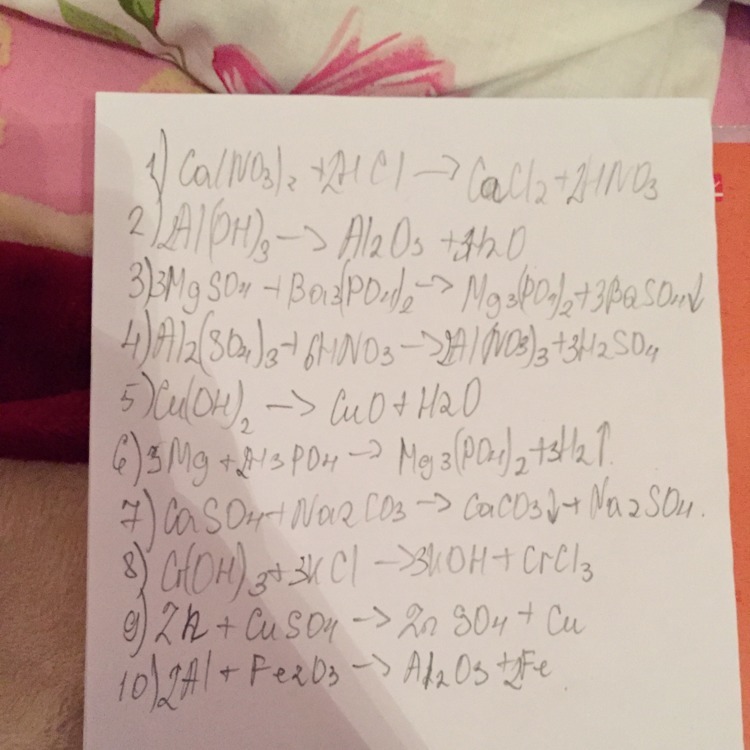 1) Ca(NO3)2 + 2HCl → CaCl2 + 2HNO3
2) 2Al(OH)3 → Al2O3 + 3H2O
3) 3MgSO4 + Ba3(PO4)2 → Mg3(PO4)2 + 3BaSO4↓
4) Al2(SO4)3 + 6HNO3 → 2Al(NO3)3 + 3H2SO4
5) Cu(OH)2 → CuO + H2O
6) 3Mg + 2H3PO4 → Mg3(PO4)2 + 3H2↑
7) CaSO4 + Na2CO3 → CaCO3↓ + Na2SO4.
8) Cr(OH)3 + 3KCl → 3KOH + CrCl3
9) Zn + CuSO4 → ZnSO4 + Cu
10) 2Al + Fe2O3 → Al2O3 + 2Fe